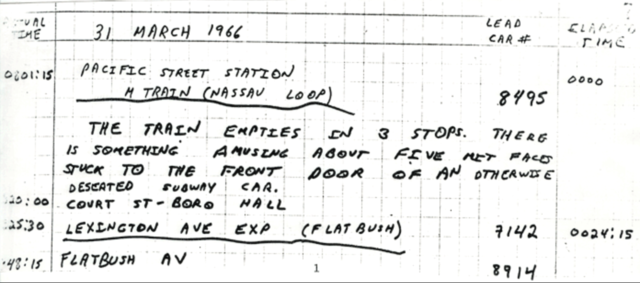 ACTUAL TIME 31 MARCH 1966 LEAD CAR # ELAPSED TIME
0801:15 PACIFIC STREET STATION 0000
M TRAIN (NASSAU LOOP) 8495
THE TRAIN EMPTIES IN 3 STOPS. THERE
IS SOMETHING AMUSING ABOUT FIVE FACES
STUCK TO THE FRONT DOOR OF AN OTHERWISE
DESERTED SUBWAY CAR.
:20:00 COURT ST-BORO HALL
:25:30 LEXINGTON AVE EXP (FLATBUSH) 7142 0024:15
:48:15 FLATBUSH AV 8914
1